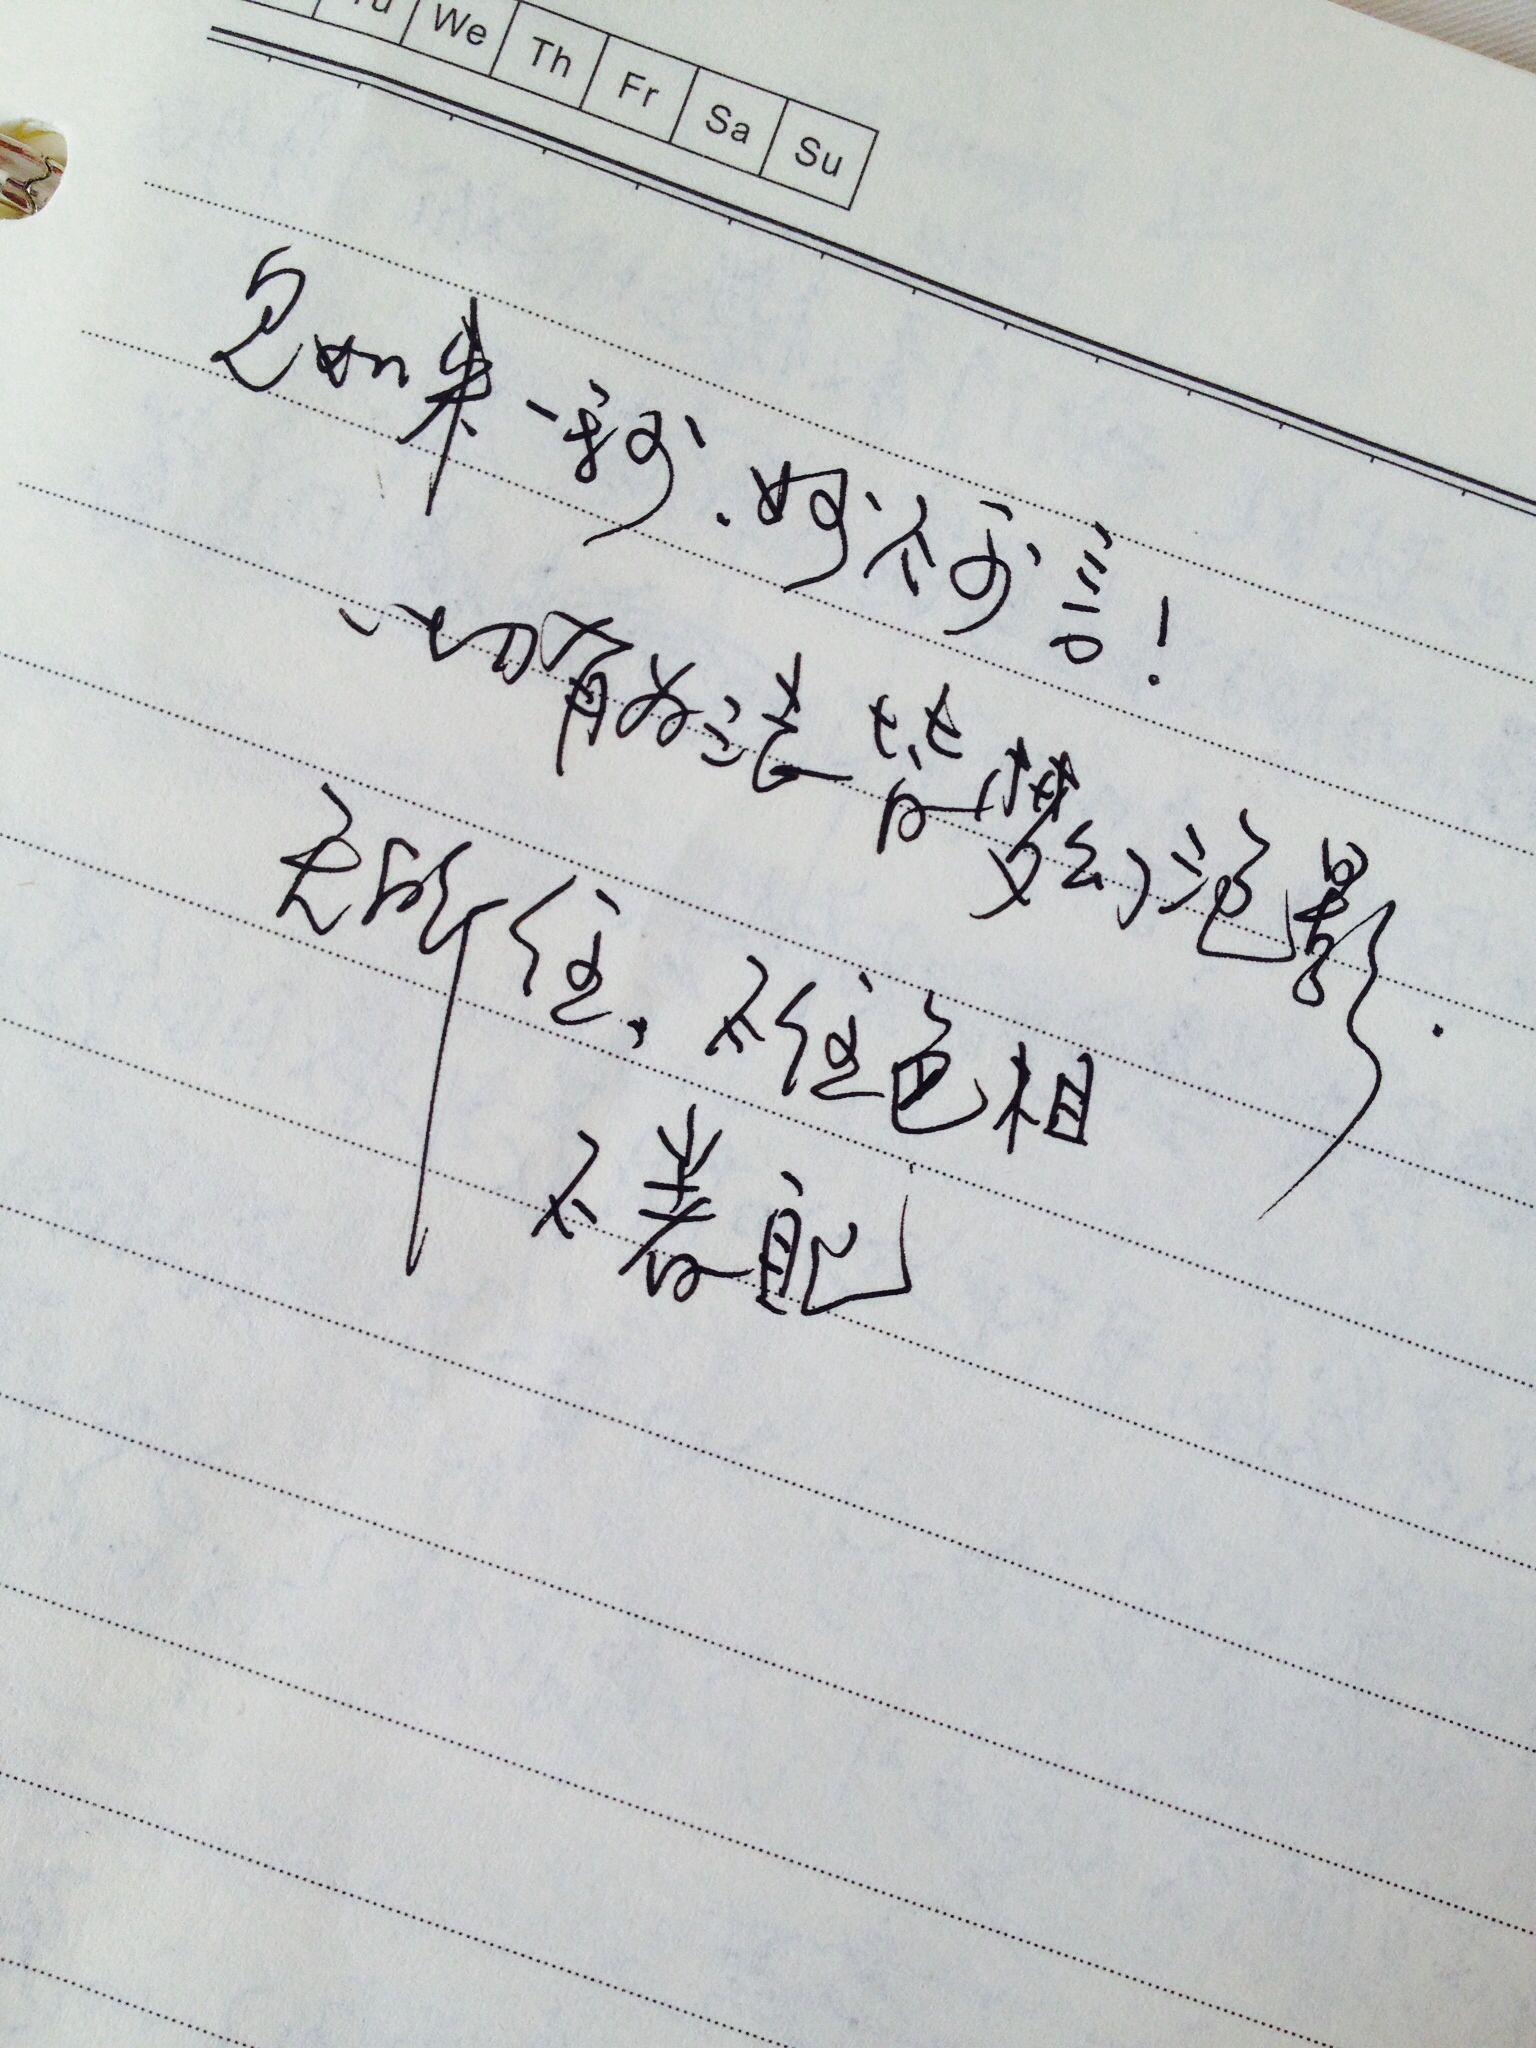 Tu We Th Fr Sa Su
如来一秒.妙不可言!
一切有为法若梦幻泡影.
无所住,不住色相
不着